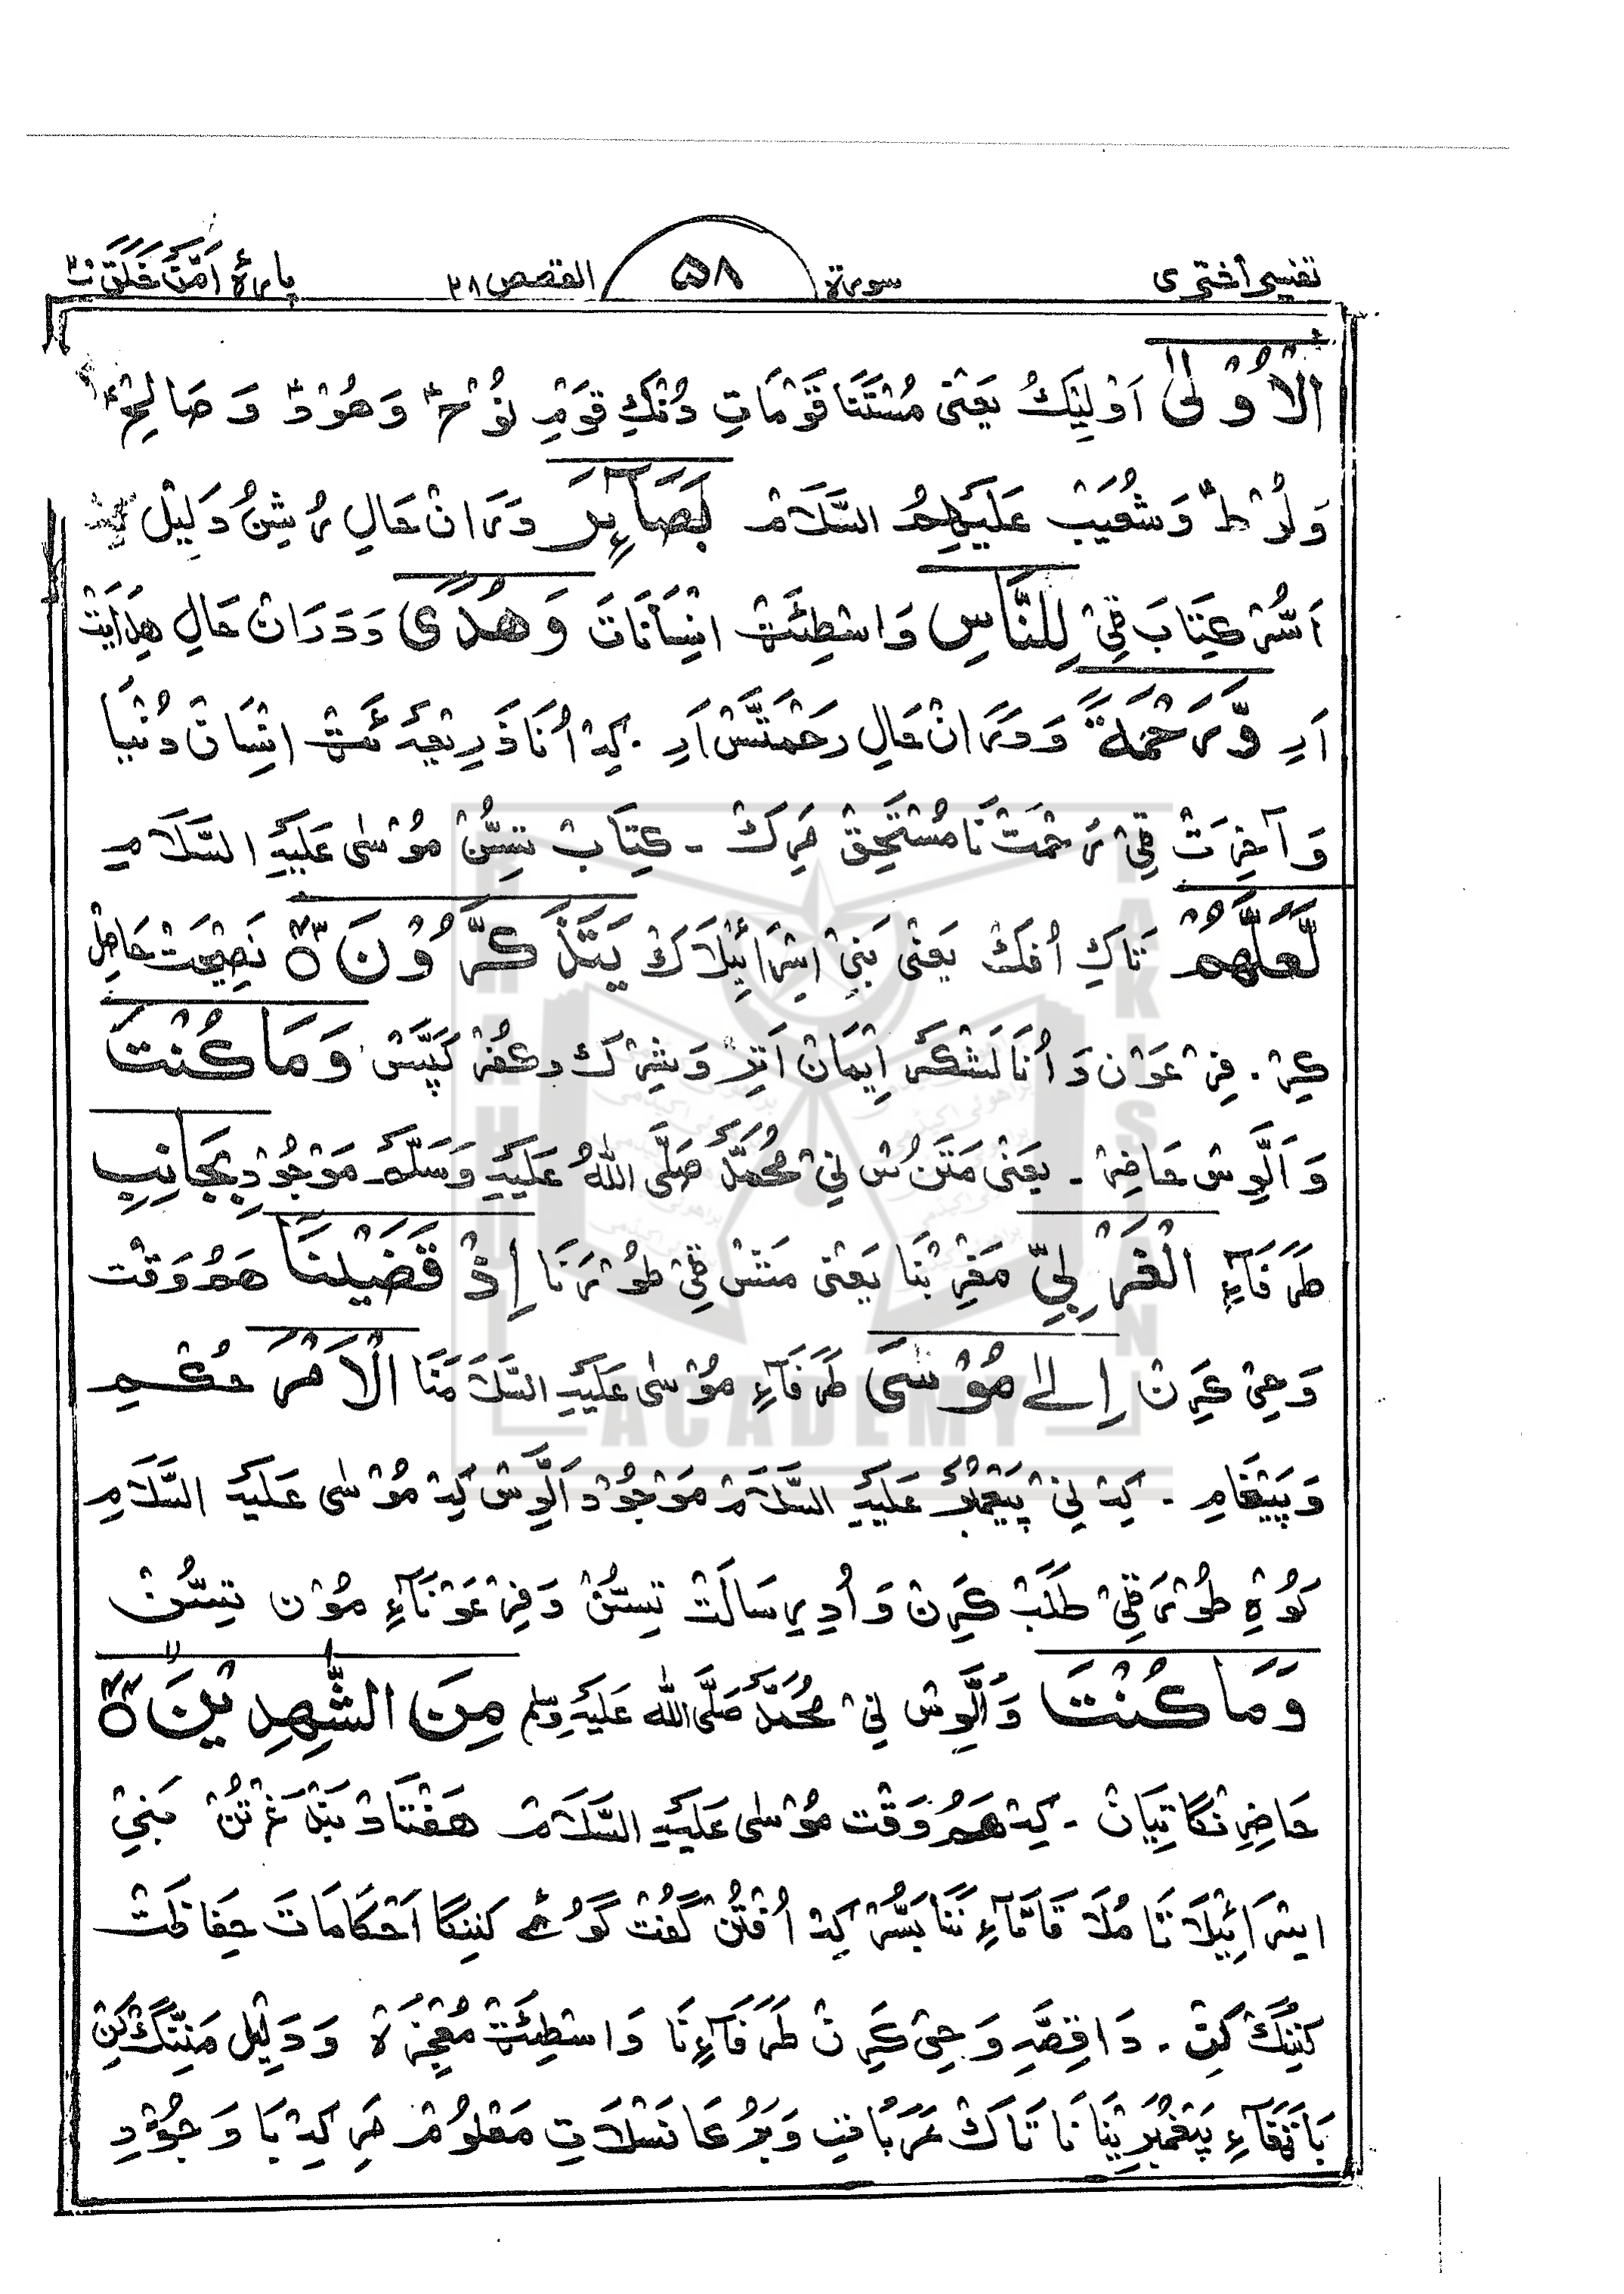 تفسیر اختری سورة ۵۸ القصص ۲۸ پارۀ اَمَّنْ خَلَقَ ۲۰
الْاُوْلٰی اَوْلِیْکُ یَعْنٰی مُسْتَنَا قَوْمَاتِ دُنْکِ قَوْمِ نُوْحْ وَ هُوْدْ وَ صَالِحْ
وَ لُوْطْ وَ شُعَیْبْ عَلَیْهِمُ السَّلَامْ بَصَآئِرَ دَرَانْ حَالِ رُشِنُ دَلِیْل
اَسُّرْ کِتَابَ ٹِیْ لِلنَّاسِ وَاسْطِئَتْ اِنْسَانَاتَ وَهُدًی وَ دَرَانْ حَالِ هِدَایَتْ
اَرِ وَّرَحْمَةً وَ دَرَانْ حَالِ رَحْمَتَّسْ اَرِ ۔ کِهْ اُنَا ذَرِیْعَہ ئَتْ اِنْسَانْ دُنْیَا
وَ آخِرَتْ ٹِیْ رَحْمَتْ نَا مُسْتَحِقْ مَرِکْ ۔ کِتَابْ تِسُّنْ مُوْسٰی عَلَیْهِ السَّلَامِ
لَّعَلَّهُمْ تَاکِ اُفکْ یَعْنٰی بَنِیْ اِسْرَائِیْلَاکْ یَتَذَکَّرُوْنَ ۴۳ نَصِیْحَتْ حَاصِلْ
کِرْ ۔ فِرْعَوْن وَ اُنَا لَشْکَرْ اِیْمَانْ اَتِرْ وَ شِرْکْ و کُفْرْ کَپَّسْ وَمَا کُنْتَ
وَ اَلَّوِسْ حَاضِرْ ۔ یَعْنٰی مَتَنُسْ نِیْ مُحَمَّدْ صَلَّی اللّٰهُ عَلَیْهِ وَسَلَّمْ مَوْجُوْدِ بِجَانِبِ
طَرَفَآءِ الْغَرْبِیِّ مَغْرِبْنَا یَعْنٰی مَتَنْس ٹِیْ طُوْرْنَا اِذْ قَضَیْنَا هَمُوَقْت
وَحِیْ کَرِنْ اِلٰی مُوْسَی طَرَفَآءِ مُوْسٰی عَلَیْهِ السَّلَامْنَا الْاَمْرَ حُکْمِ
وَ پَیْغَامِ ۔ کِهْ نِیْ پَیْغَمْبَرْ عَلَیْهِ السَّلَامْ مَوْجُوْدْ اَلَّوِسْ کِهْ مُوْسٰی عَلَیْهِ السَّلَامِ
کُوْهِ طُوْرَ ٹِیْ طَلَبْ کَرِنْ وَ اُدِ رِسَالَتْ تِسُّنْ وَ فِرْعَوْنَآءِ مُوْن تِسُّنْ
وَمَا کُنْتَ وَ اَلَّوِسْ نِیْ مُحَمَّدْ صَلَّی اللّٰه عَلَیْهِ وسلم مِنَ الشّٰهِدِیْنَ ۴۴
حَاضِرْنْکَاتِیَانْ ۔ کِهْ هَمُوَقْت مُوْسٰی عَلَیْهِ السَّلَامْ هَفْتَادْ بَنْدَغْ تُنْ بَنِیْ
اِسْرَائِیْلَانَا مُلَاقَاتَآءِ نَنَا بَسُّرْ کِهْ اُفْتُنْ گُفْت گُوْئے کَنِنْگَا اَحْکَامَاتَ حِفَاظَتْ
کَنِنْگْ کِنْ ۔ دَا قِصَّهِ وَحِیْ کَرِنْ طَرَفَآءِنَا وَاسْطِئَتْ مُعْجِزَهْ وَ دَلِیْل مَنِنْگْ کِنْ
بَانَفَآءِ پَیْغَمْبَرِیْنَا نَا تَاکْ عَرَبَاتِ وَ بَرُعَا نَسْلَاتِ مَعْلُوْمْ مَرِ کِهْ بَا وَجُوْدِ